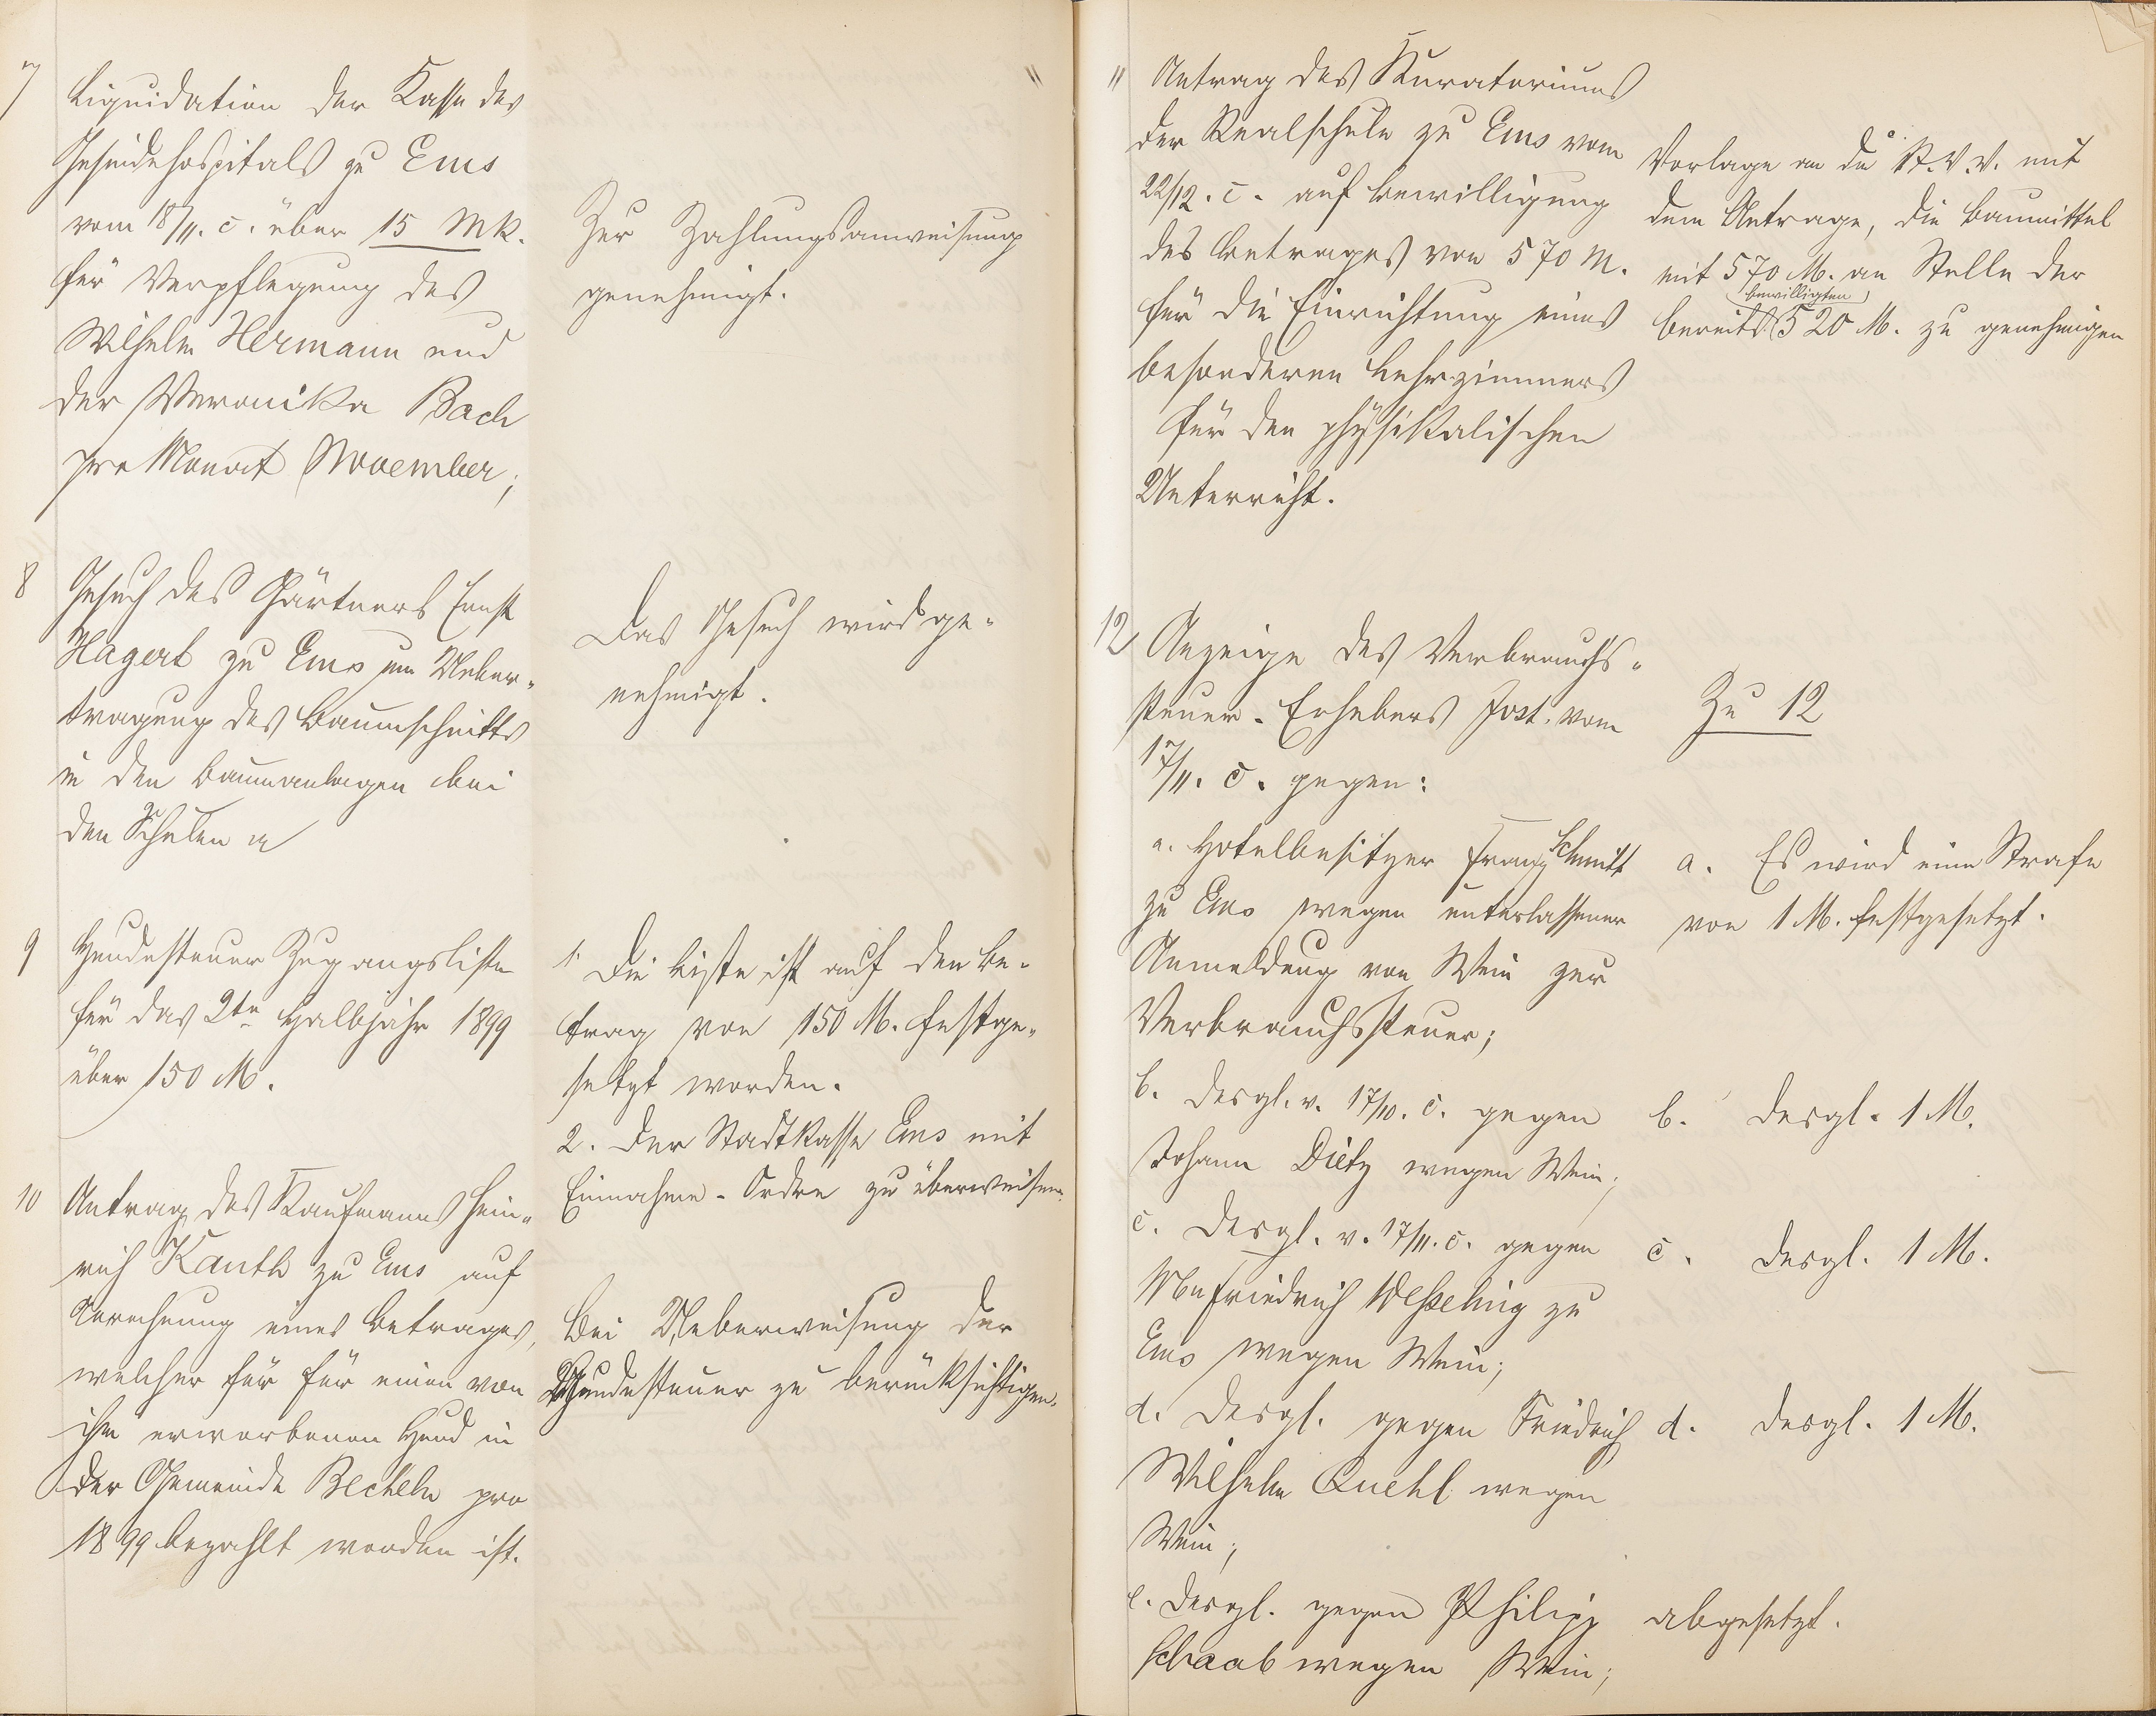 7
Liquidation der Kasse des
Gesindehospitals zu Ems
vom 18/11. c. über 15 Mk.
für Verpflegung des
Wilhelm Hermann und
der Veronika Bach
pro Monat November;
Zur Zahlungsanweisung
genehmigt.
8
Gesuch des Gärtners Ernst
Hagert zu Ems um Ueber-
tragung des Baumschnitts
in den Baumanlagen bei
den Schulen
Das Gesuch wird ge-
nehmigt.
9
Hundesteuer Zugangsliste
für das 2te Halbjahr 1899
über 150 M.
1. Die Liste ist auf den Be-
trag von 150 M. festge-
setzt worden.
2. Der Stadtkasse Ems mit
Einnahme-Ordre zu überweisen.
10
Antrag des Kaufmanns Hein-
rich Kauth zu Ems auf
Anrechnung eines Betrages,
welcher für für einen von
ihm erworbenen Hund in
der Gemeinde Becheln pro
1899 bezahlt worden ist.
Bei Ueberweisung der
Hundesteuer zu berücksichtigen.
11
"
Antrag des Kuratoriums
der Realschule zu Ems vom
22/12. c. auf Bewilligung
des Betrages von 570 M.
für die Einrichtung eines
besonderen Lehrzimmers
für den physikalischen
Unterricht.
Vorlage an die St.V.V. mit
dem Antrage, die Baumittel
mit 570 M. an Stelle der
bewilligten
bereits 520 M. zu genehmigen
12
Anzeige des Verbrauchs-
steuer-Erhebers Jost. vom
17/11. c. gegen:
Zu 12
a. Hotelbesitzer Franz Schmitt
zu Ems wegen unterlassener
Anmeldung von Wein zur
Verbrauchssteuer;
a. Es wird eine Strafe
von 1 M. festgesetzt.
b. desgl. v. 17/10. c. gegen
Johann Dietz wegen Wein;
b. desgl. 1 M.
c. desgl. v. 17/11. c. gegen
Friedrich Weßeling zu
Ems wegen Wein;
c. desgl. 1 M.
d. desgl. gegen Friedrich
Wilhelm Quehl wegen
Wein;
d. desgl. 1 M.
e. desgl. gegen Philipp
Schaab wegen Wein;
abgesetzt.